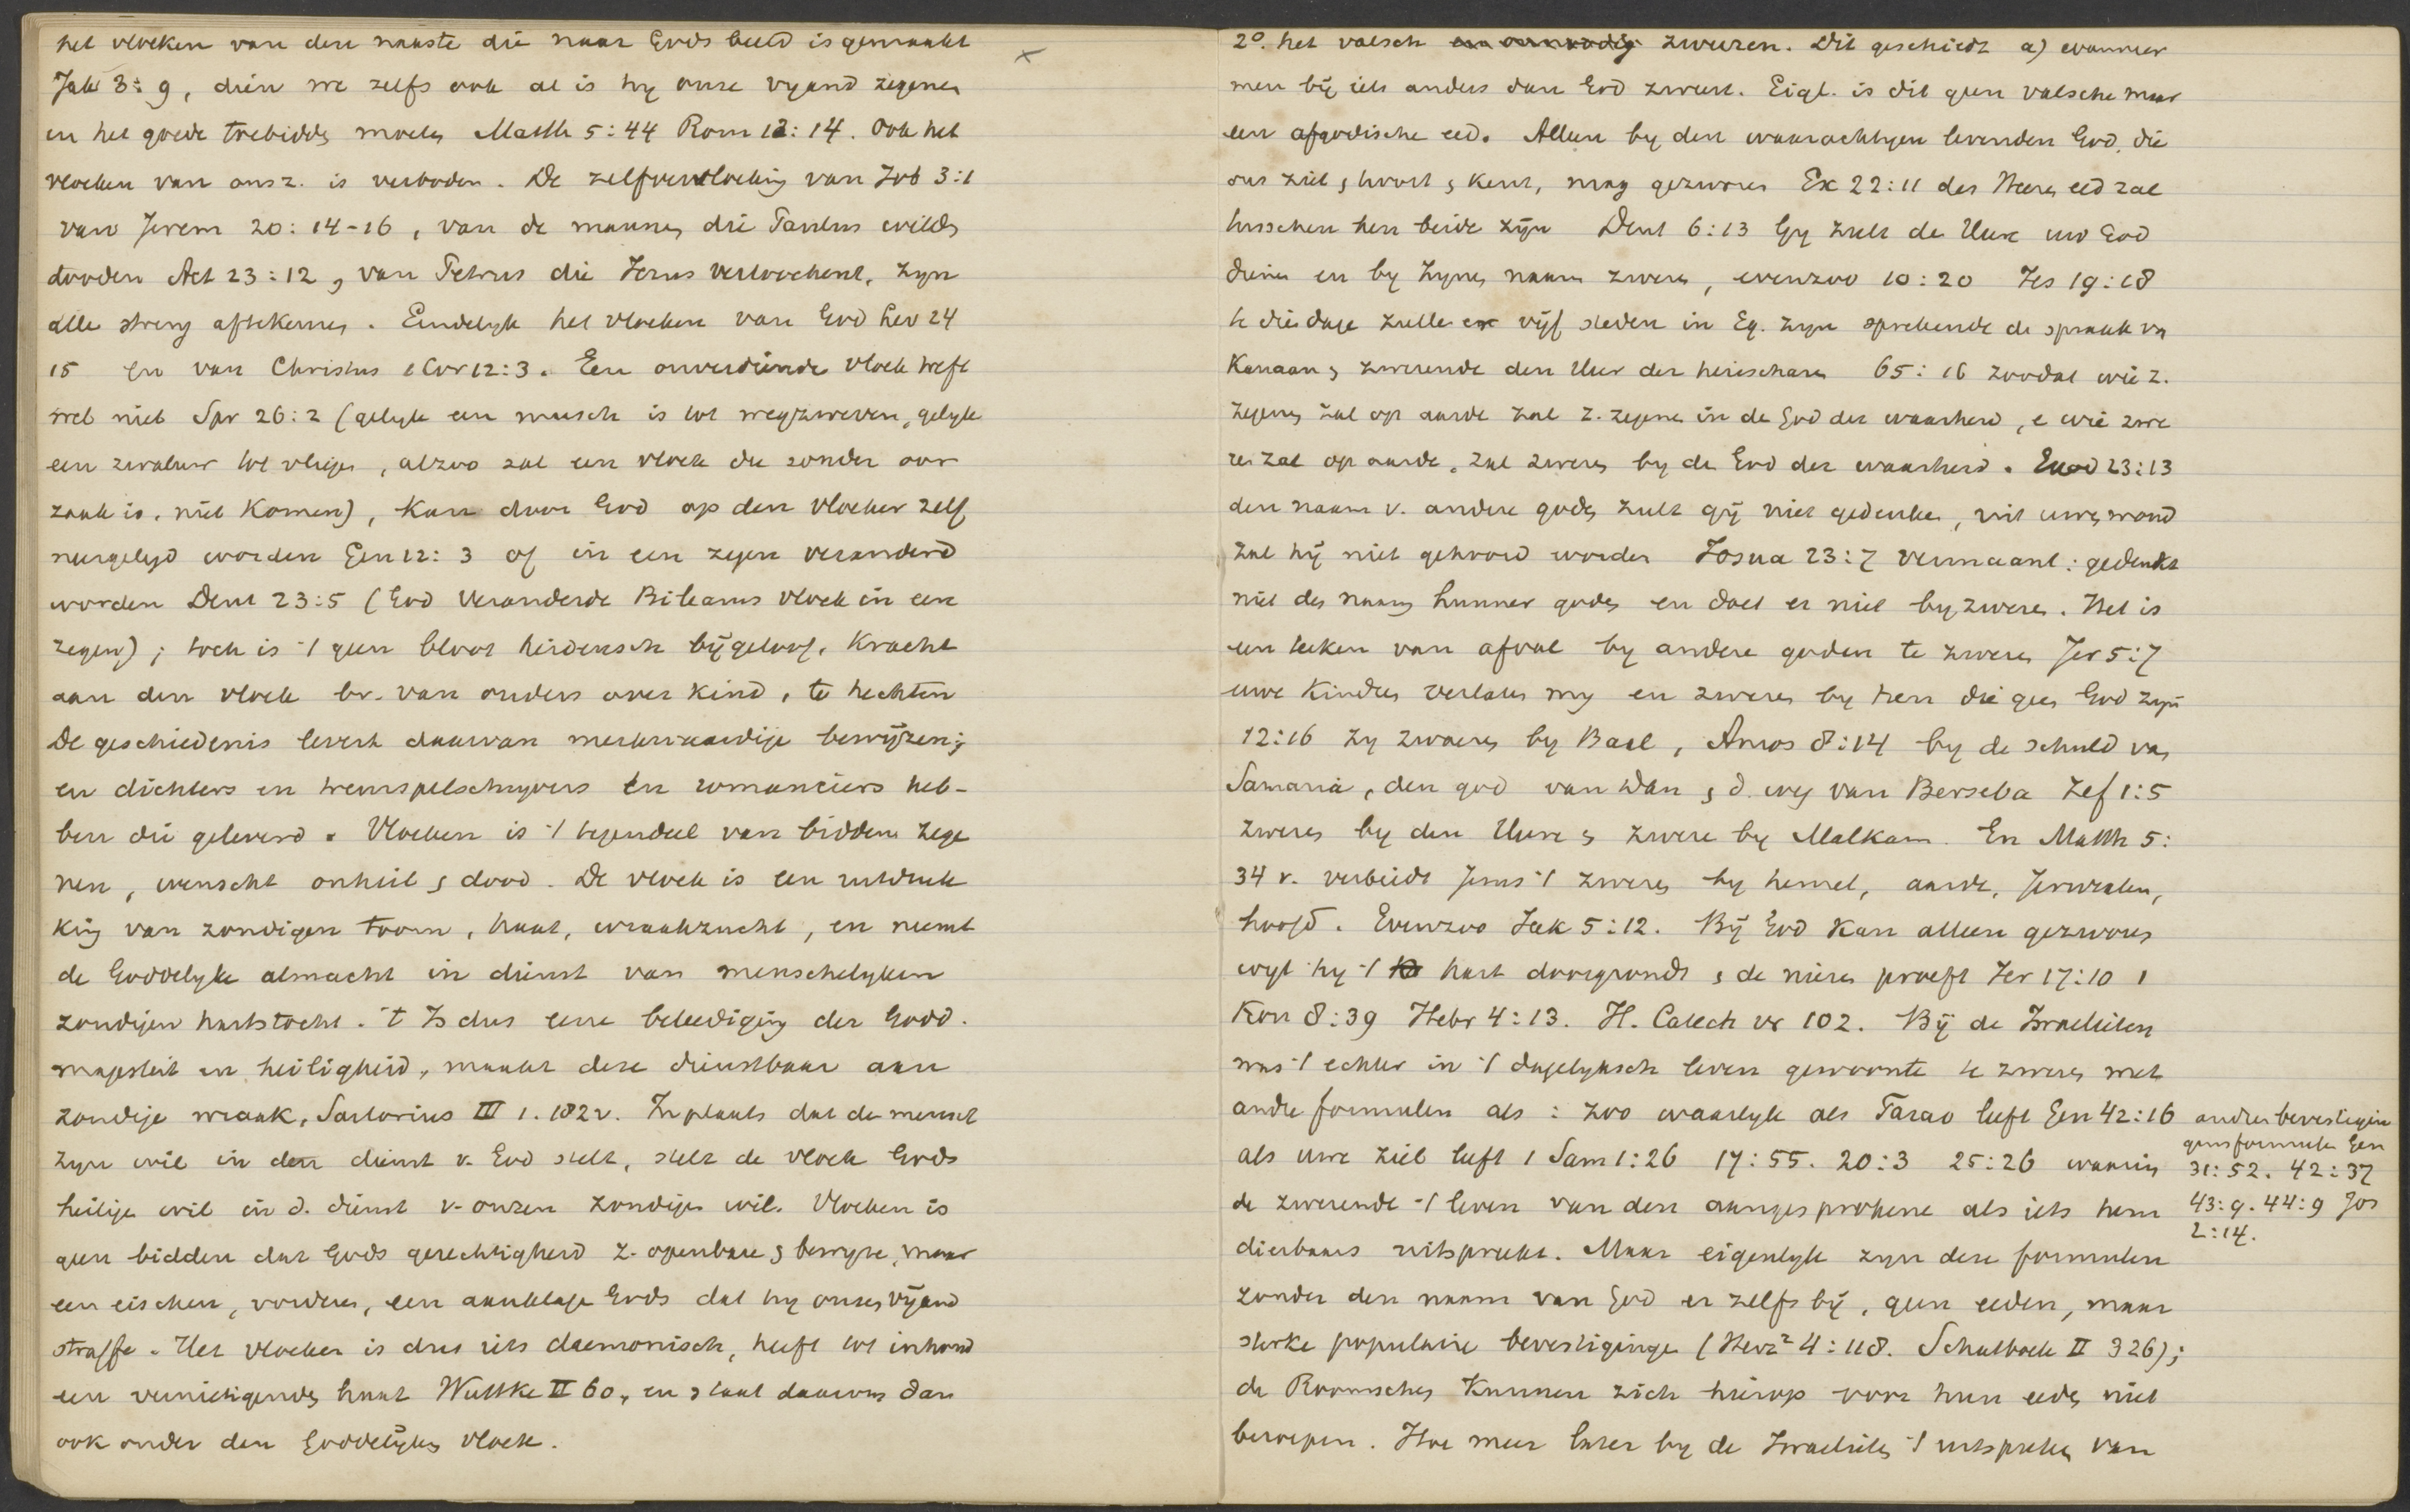 het vloeken van den naaste die naar Gods beeld is gemaakt
Jak 3:9, dien we zelfs ook al is hy onze vyand zegenen
en het goede toebidden moeten Matth 5:44 Rom 12:14. Ook het
vloeken van onsz. is verboden. De zelfvervloeking van Job 3:1
van Jerem 20:14-16, van de mannen die Paulus wilden
dooden Act 23:12, van Petrus die Jezus verloochent, zyn
alle streng aftekeuren. Eindelyk het vloeken van God Lev 24
15 en van Christus 1 Cor 12:3. Een onverdiende vloek treft
wel niet Spr 26:2 (gelyk een musch is tot wegzweven, gelyk
een zwaluw tot vliegen, alzoo zal een vloek die zonder oor
zaak is, niet komen), kan door God op den vloeker zelf
neergelegd worden Gen 12:3 of in een zegen veranderd
worden Deut 23:5 (God veranderde Bileams vloek in een
zegen); toch is 't geen bloot heidensch bijgeloof, kracht
aan den vloek bv. van ouders over kind, te hechten
De geschiedenis levert daarvan merkwaardige bewijzen;
en dichters en treurspelschryvers en romanciers heb-
ben die geleverd. Vloeken is 't tegendeel van bidden zege
nen, wenscht onheil & dood. De vloek is een uitdruk
king van zondigen toorn, haat, wraakzucht, en neemt
de Goddelyke almacht in dienst van menschelyken
zondigen hartstocht. 't Is dus eene beleediging der Godd.
majesteit en heiligheid, maakt deze dienstbaar aan
zondige wraak, Sartorius III 1. 182v. In plaats dat de mensch
zyn wil in den dienst v. God stelt, stelt de vloek Gods
heilige wil in d. dienst v. onzen zondigen wil. Vloeken is
geen bidden dat Gods gerechtigheid z. openbare & bewyze, maar
een eischen, vorderen, een aanklage Gods dat hy onzen vijand
straffe. Het vloeken is dus iets daemonisch, heeft tot inhoud
een vernietigenden haat Wuttke II 60, en staat daarom dan
ook onder den Goddelijken vloek.
×
2°. het valsch en onnoodig zweren. Dit geschiedt a) wanneer
men bij iets anders dan God zweert. Eigl. is dit geen valsche maar
een afgodische eed. Alleen by den waarachtigen levenden God, die
ons ziet, hoort & kent, mag gezworen Ex 22:11 des Heeren eed zal
tusschen hen beide zijn Deut 6:13 Gy zult de Heere uw God
dienen en by Zynen naam zweren, evenzoo 10:20 Jes 19:18
te dien dage zullen er vijf steden in Eg. zyn sprekende de spraak vn
Kanaan & zwerende den Heer der heirscharen 65:16 zoodat wie z.
zegenen zal op aarde zal z. zegenen in de God der waarheid, e wie zwe
ren zal op aarde, zal zweren by de God der waarheid. Exod 23:13
den naam v. andere goden zult gij niet gedenken, uit uwen mond
zal hij niet gehoord worden Josua 23:7 vermaant: gedenkt
niet des naams hunner goden en doet er niet by zweren. Het is
een teeken van afval by andere goden te zweren Jer 5:7
uwe kinderen verlaten my en zweren by hen die geen God zyn
12:16 zy zworen by Baal, Amos 8:14 by de schuld van
Samaria, den god van Dan & d. weg van Berseba Zef 1:5
zweren by den Heere & zweren by Malkam. En Matth 5:
34 v. verbiedt Jezus 't zweren by hemel, aarde, Jeruzalem,
hoofd. Evenzoo Jak 5:12. Bij God kan alleen gezworen
wyl hy 't hart doorgrondt & de nieren proeft Jer 17:10 1
Kon 8:39 Hebr 4:13. H. Catech vr 102. Bij de Israelieten
was 't echter in 't dagelyksch leven gewoonte te zweren met
andre formulen als: zoo waarlyk als Farao leeft Gen 42:16
als uwe ziel leeft 1 Sam 1:26 17:55. 20:3 25:26 waarin
de zwerende 't leven van den aangesprokene als iets hem
dierbaars uitspreekt. Maar eigenlyk zyn deze formulen
zonder den naam van God er zelfs bij, geen eeden, maar
sterke populaire bevestigingen (Herz² 4:118. Schulboek II 326);
de Roomschen kunnen zich hierop voor hun eeden niet
beroepen. Hoe meer later by de Israelieten 't uitspreken van
andere bevestigin
gensformulen Gen
31:52. 42:37
43:9. 44:9 Jos
2:14.